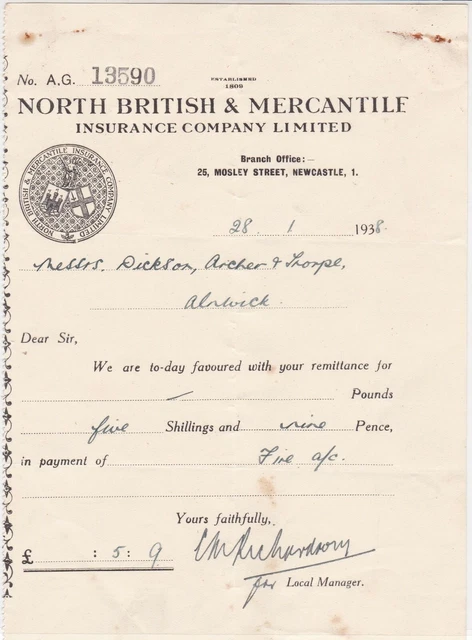 No. A.G. 13590
ESTABLISHED
1809
NORTH BRITISH & MERCANTILE
INSURANCE COMPANY LIMITED
NORTH BRITISH & MERCANTILE INSURANCE COMPANY LIMITED
Branch Office:-
25, MOSLEY STREET, NEWCASTLE, 1.
28 . 1 1938.
Messrs. Dickson, Archer & Thorpe,
Alnwick.
Dear Sir,
We are to-day favoured with your remittance for
— Pounds
five Shillings and nine Pence,
in payment of Fire a/c.
Yours faithfully,
£ : 5 : 9 Richardson
for Local Manager.